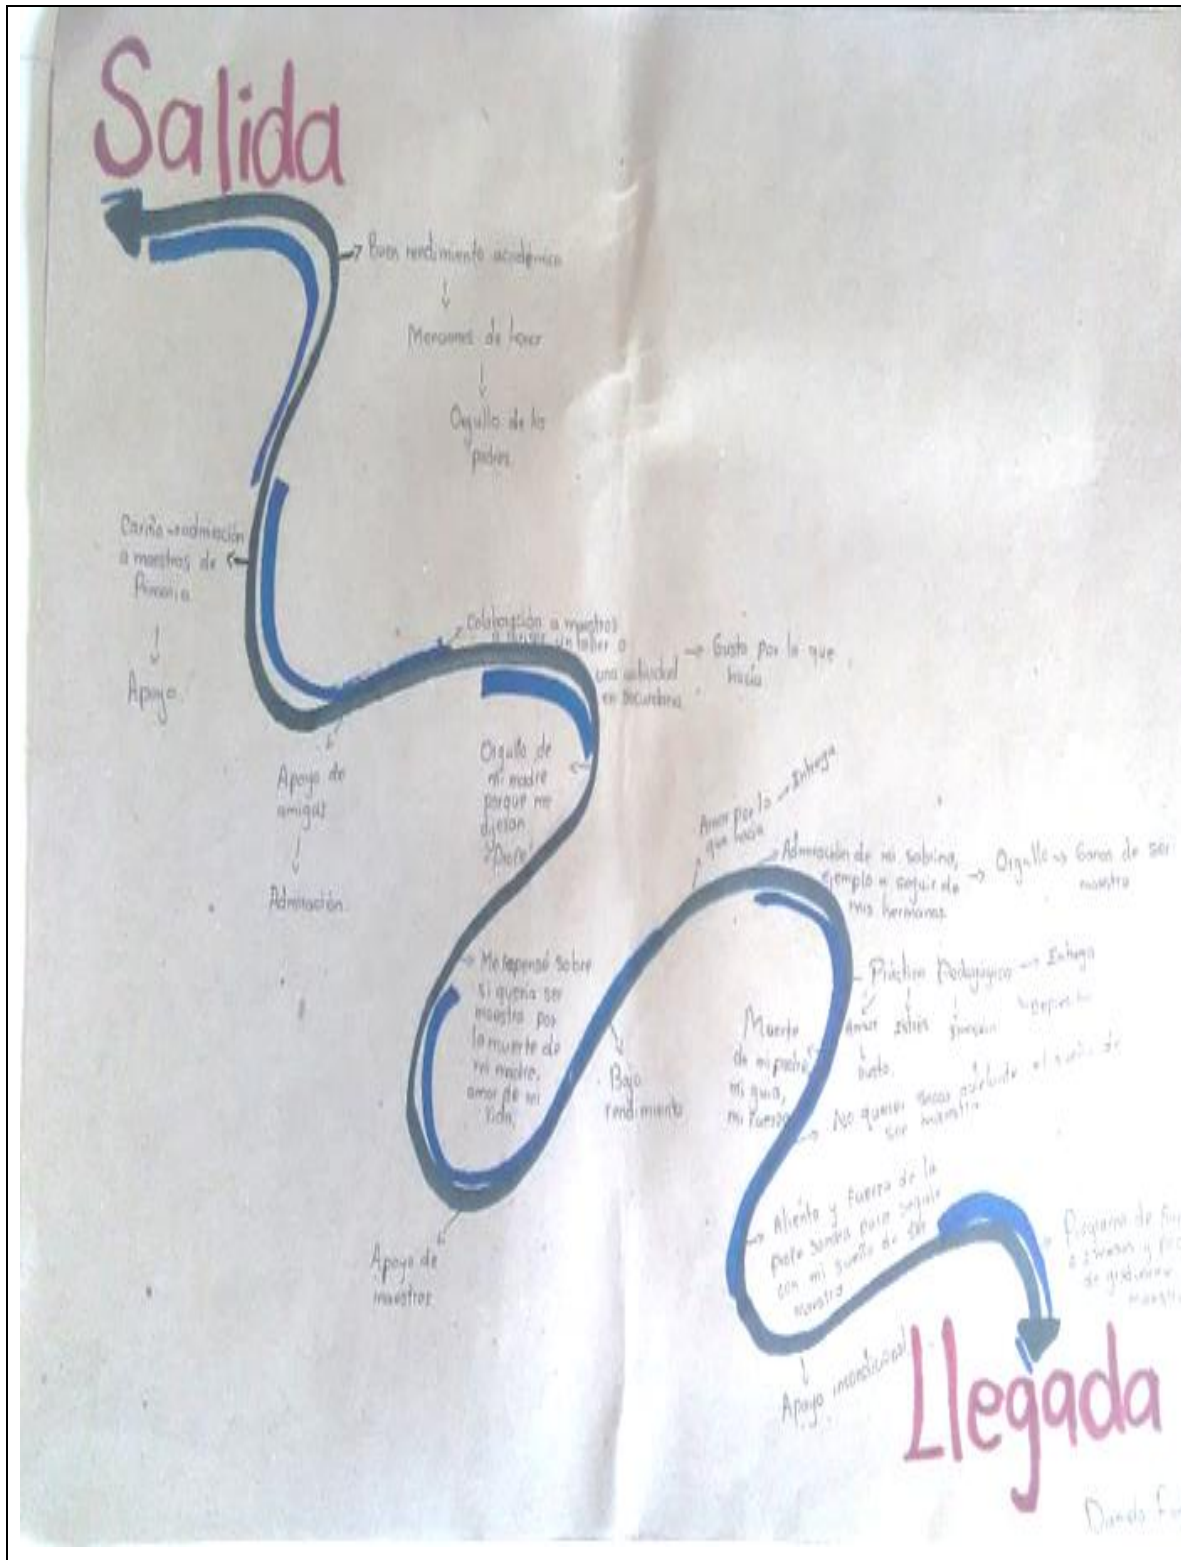 Salida
Buen rendimiento académico
Menciones de honor
Orgullo de
padres
Cariño
a maestros de
Primaria
Apoyo
Colaboración a maestros
una actividad
en secundaria
Gusto por lo que
hacía
Apoyo de
amigas
Admiración
Orgullo de
mi madre
porque me
Amor por lo
que hacía
Entrega
Admiración de mi sobrina,
ejemplo a seguir de
mis hermanas
Orgullo
Ganas de ser
maestra
Me repensé sobre
si quería ser
maestra por
la muerte de
mi madre,
amor de mi
vida,
Bajo
rendimiento
Práctica Pedagógica
Entrega
Amor
Muerte
de mi padre
mi guía,
mi fuerza
No querer sacar adelante el sueño de
ser maestra
Apoyo de
maestros
Aliento y fuerza de la
profe Sandra para seguir
con mi sueño de ser
maestra
Apoyo incondicional
Programa de
de graduarme
Llegada